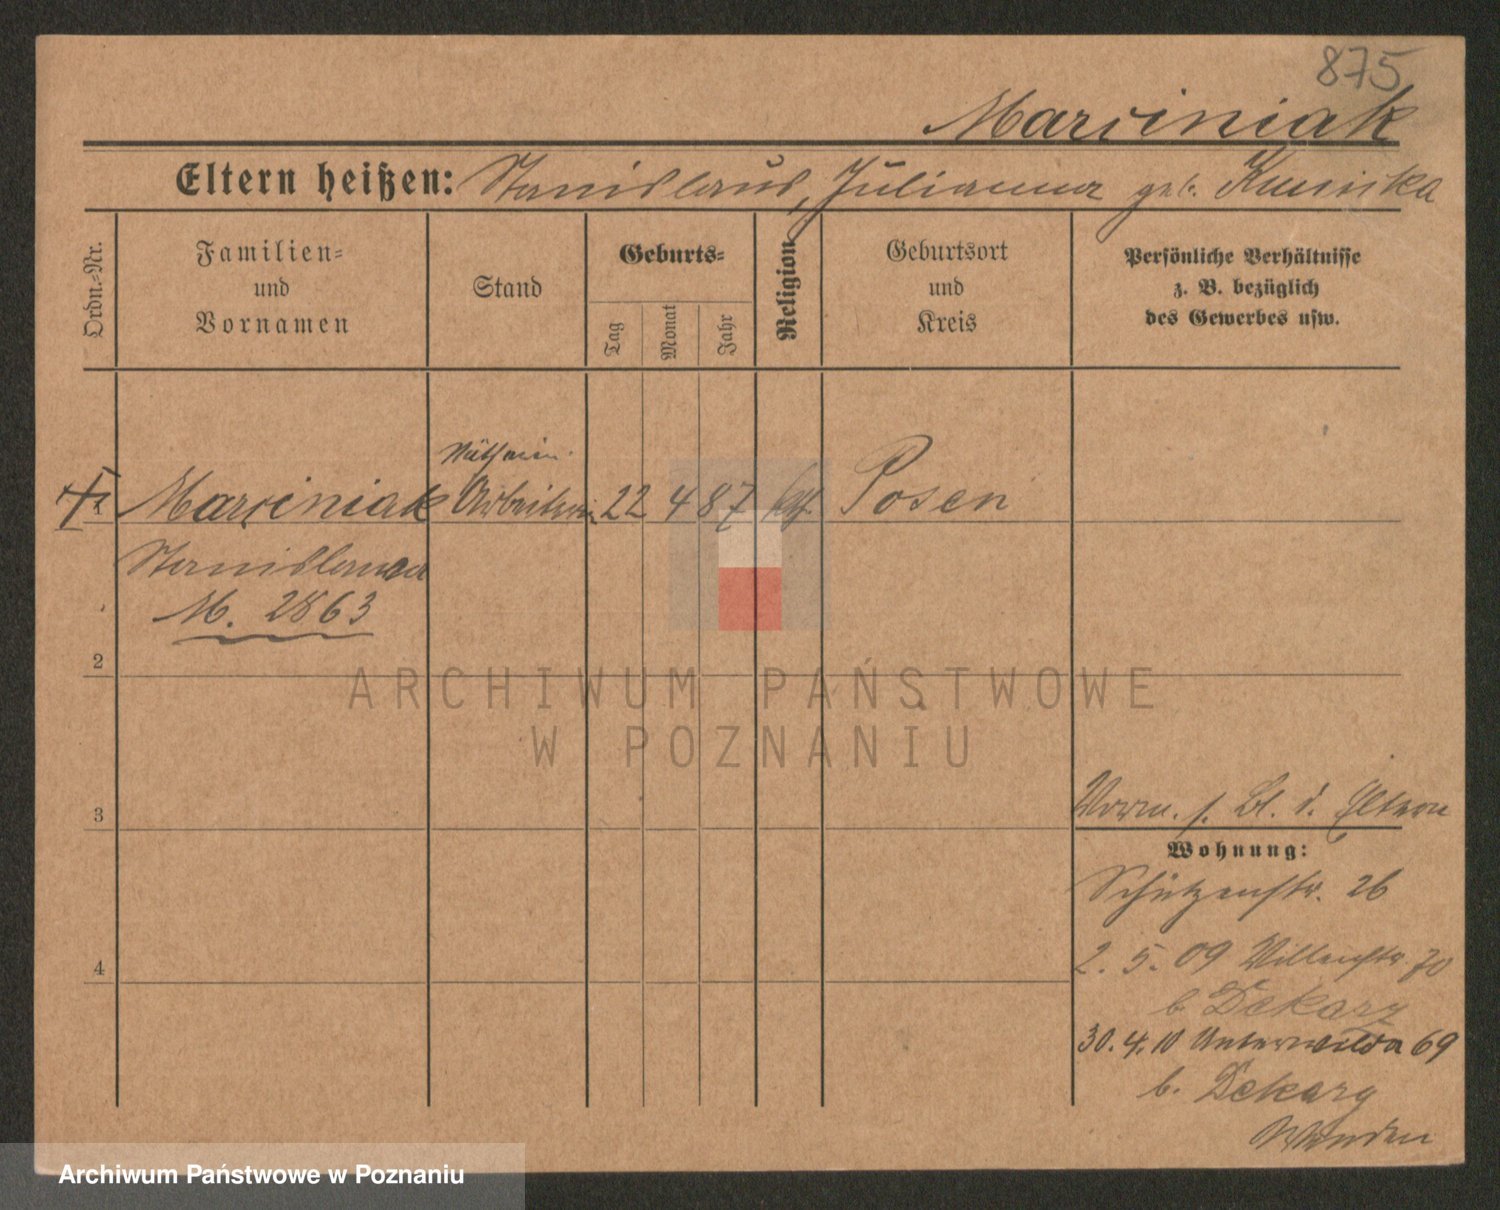 875
Marciniak
Eltern heißen: Stanislaus, Julianna geb.
Ordn.-Nr.
Familien-
und
Vornamen
Stand
Geburts-
Tag
Monat
Jahr
Religion
Geburtsort
und
Kreis
Persönliche Verhältnisse
z. B. bezüglich
des Gewerbes usw.
Näherin
1 Marciniak Arbeiterin 22 4 87 kth. Posen
Stanislawa
M. 2863
2
ARCHIWUM PAŃSTWOWE
W POZNANIU
3
Vorm. s. Bl. d. Eltern
Wohnung:
Schützenstr. 26
4
2. 5. 09 70
b. Dekarz
30. 4. 10 Unterwilda 69
b. Dekarz
Archiwum Państwowe w Poznaniu